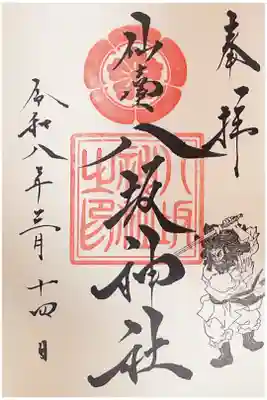 奉拝
仙臺八坂神社
八坂神社之印
令和八年三月十四日